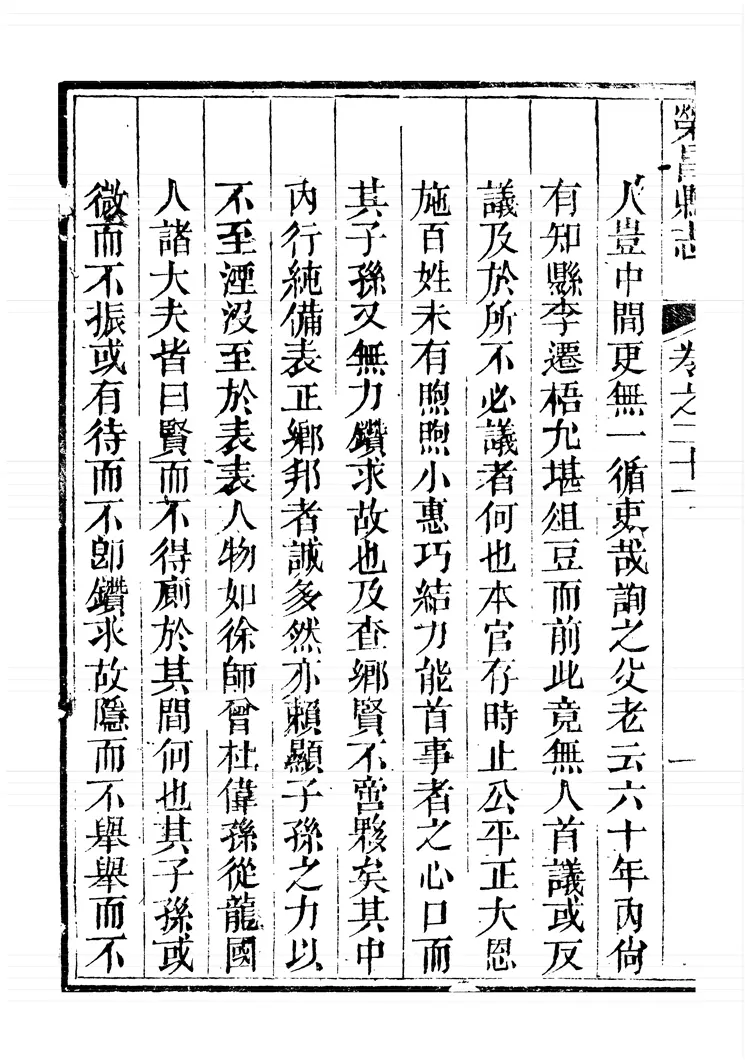 榮昌縣志 卷之二十一 一
人豈中間更無一循吏哉詢之父老云六十年內尙
有知縣李遷梧尢堪俎豆而前此竟無人首議或反
議及於所不必議者何也本官存時止公平正大恩
施百姓未有煦煦小惠巧結力能首事者之心口而
其子孫又無力鑽求故也及查鄉賢不啻夥矣其中
內行純備表正鄉邦者誠多然亦賴顯子孫之力以
不至湮沒至於表表人物如徐師曾杜偉孫從龍國
人諸大夫皆曰賢而不得廁於其間何也其子孫或
微而不振或有待而不卽鑽求故隱而不舉舉而不